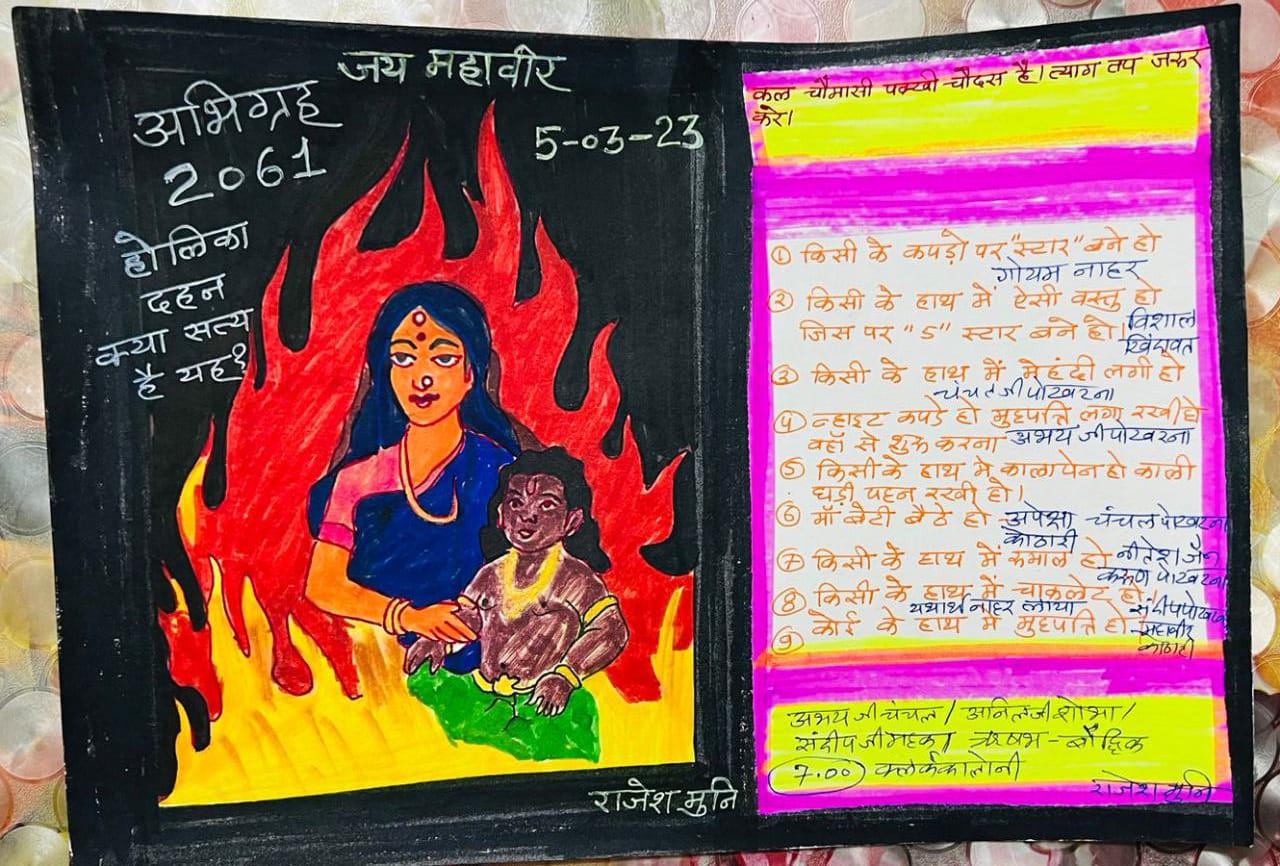 जय महावीर
अभिग्रह
2061
5-03-23
होलिका
दहन
क्या सत्य
है यह?
राजेश मुनि
कल चौमासी पक्खी चौदस है। त्याग तप जरूर
करे।
① किसी के कपड़ो पर "स्टार" बने हो
गोयम नाहर
② किसी के हाथ में ऐसी वस्तु हो
जिस पर "5" स्टार बने हो।
विशाल
③ किसी के हाथ में मेहंदी लगी हो
④ व्हाइट कपडे हो मुहपत्ति लगा रखी हो
वहाँ से शुरू करना अभय जी पोखरना
⑤ किसी के हाथ मे काला पेन हो काली
घड़ी पहन रखी हो।
⑥ माँ बेटी बैठे हो अपेक्षा चंचल पोखरना
कोठारी
⑦ किसी के हाथ में रुमाल हो नीतेश जैन
करुण पोखरना
⑧ किसी के हाथ में चाकलेट हो
यथार्थ नाहर लाया संदीप पोखरना
⑨ कोई के हाथ में मुहपत्ति हो
महावीर
कोठारी
अभय जी चंचल / अनिलजी शोभा /
संदीप जी महक / ऋषभ - बौद्धिक
7.00 क्लर्क कालोनी
राजेश मुनि